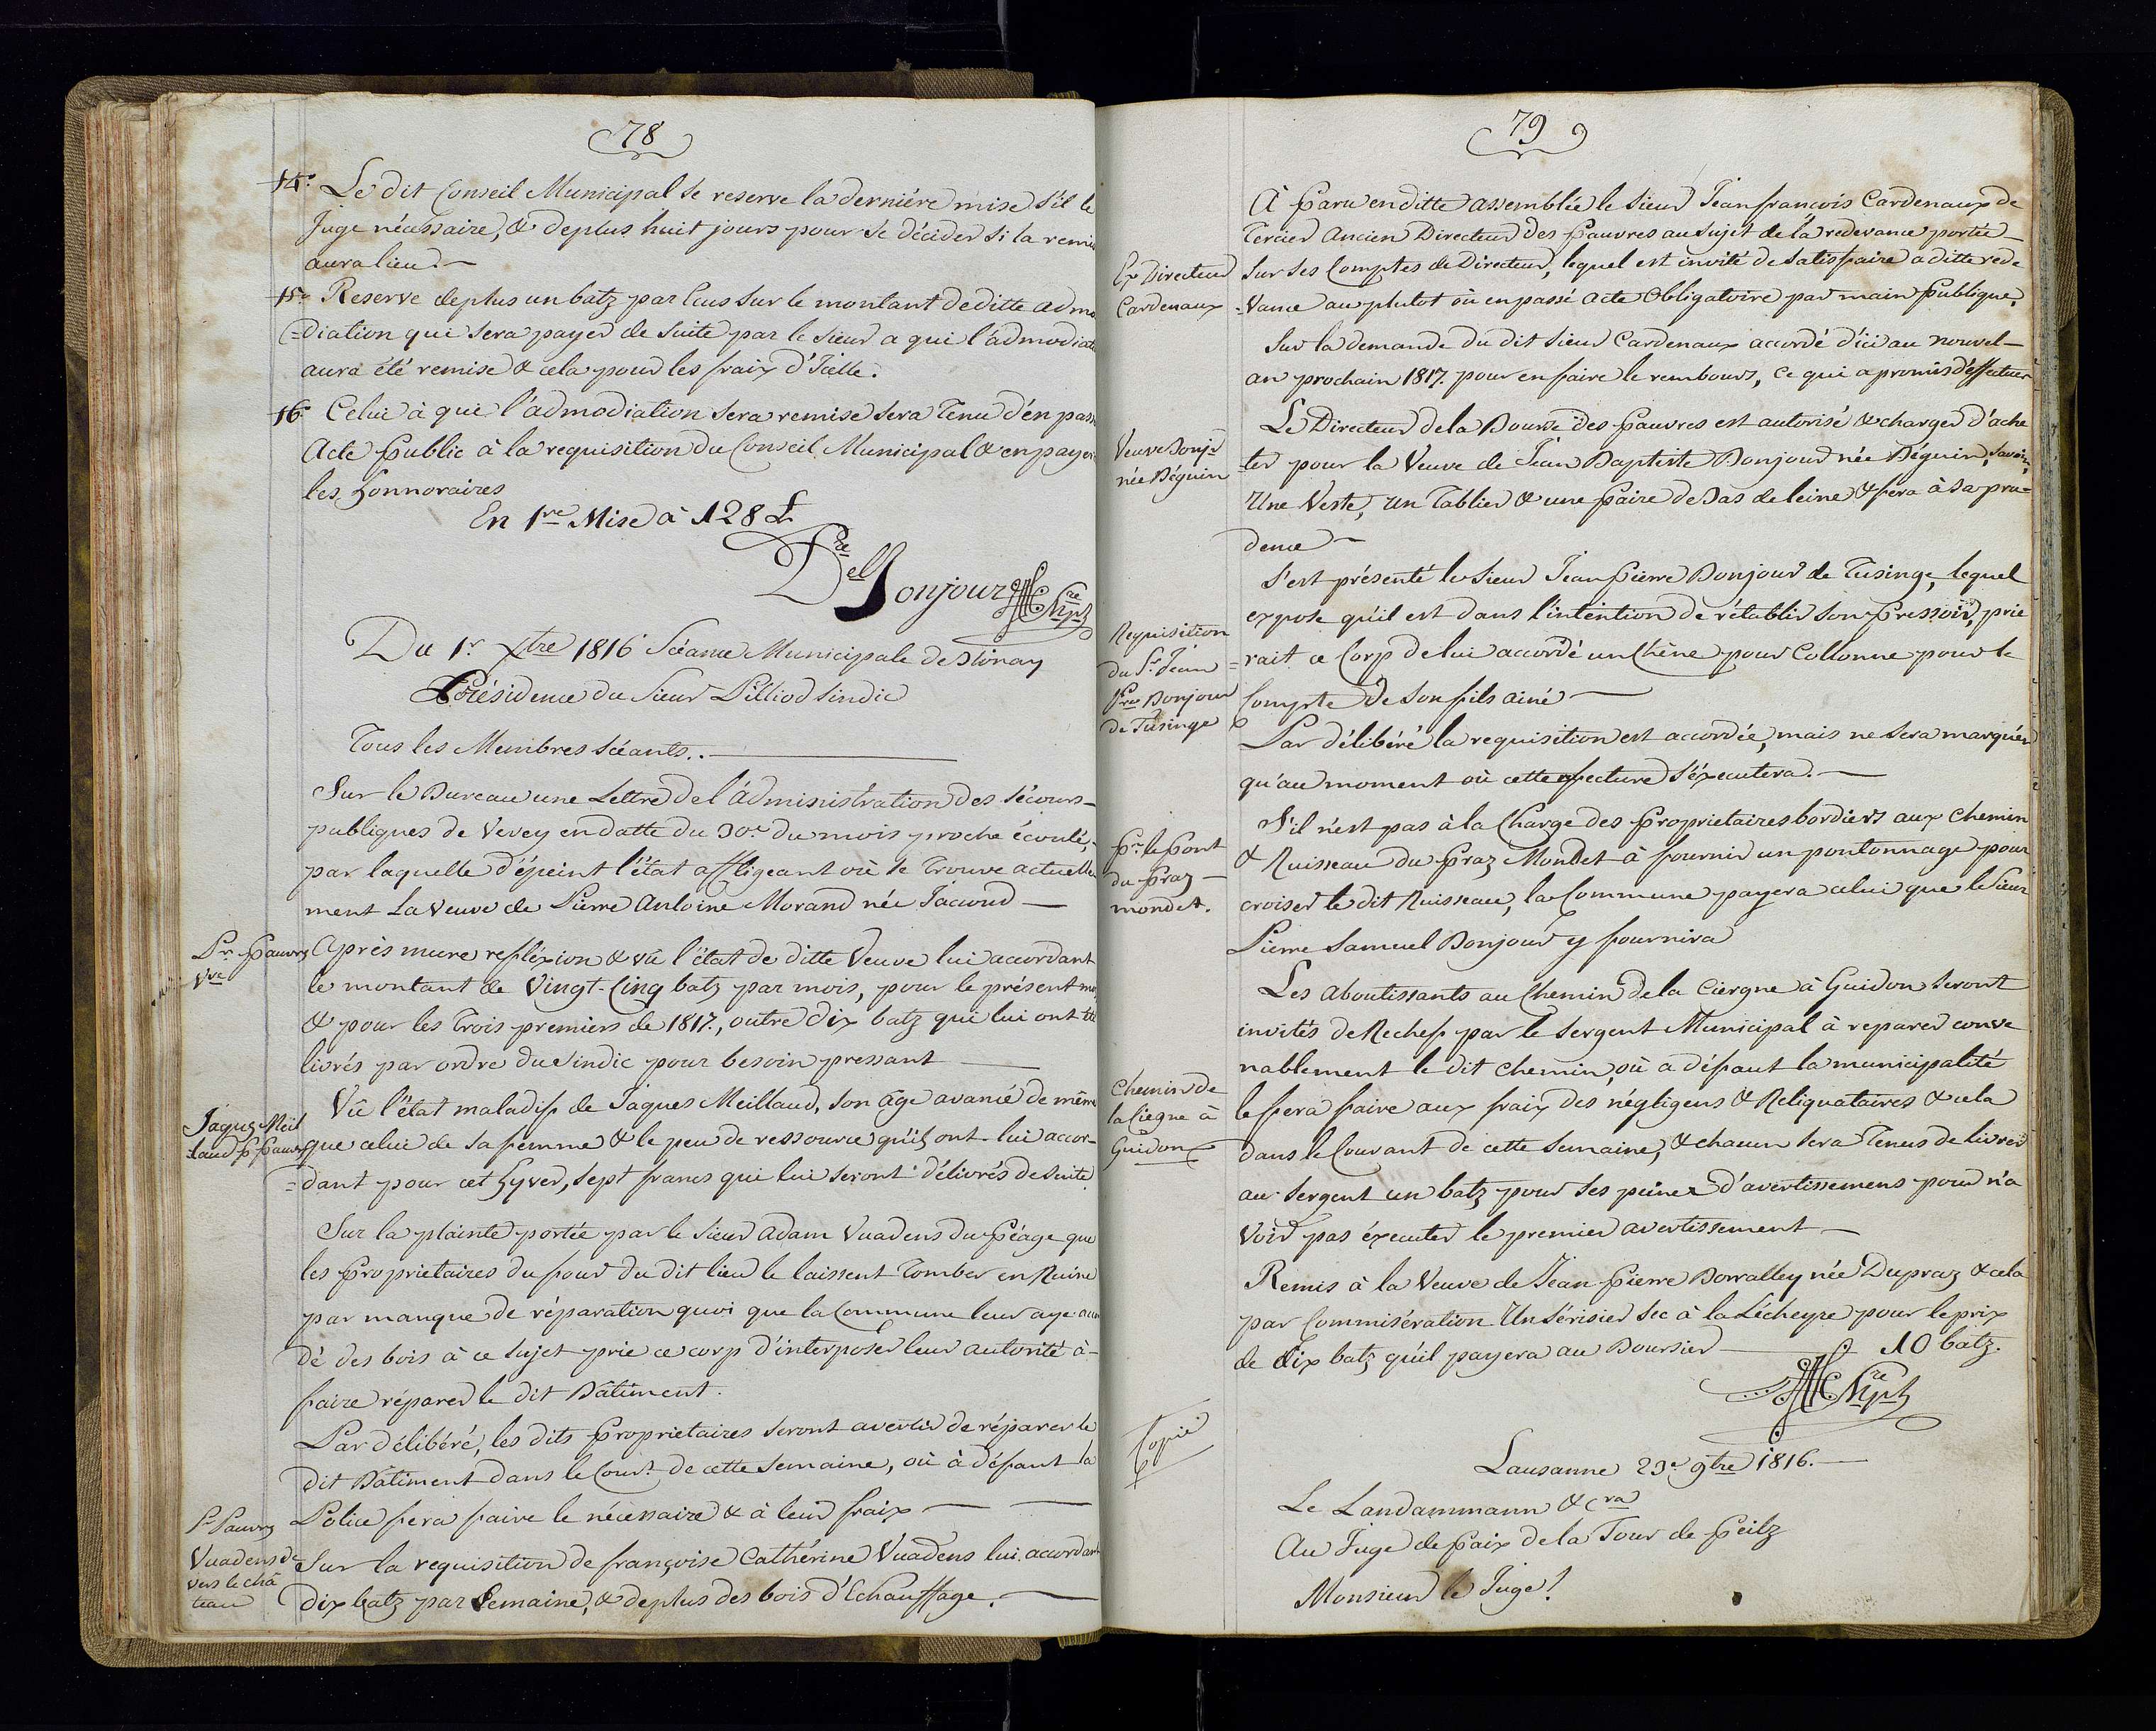 78
14.° Le dit Conseil Municipal se reserve la derniére mise s'il le
Juge nécessaire, & deplus huit jours pour se décider si la remis
aura lieu. —
15.° Reserve deplus un batz par Ecus sur le montant de ditte admo
=diation qui sera payer de suite par le sieur a qui l'admodiati
aura été remise & cela pour les fraix d'Icelle.
16.° Celui à qui l'admodiation sera remise sera Tenu d'en pass
Acte public à la requisition du Conseil Municipal & en payer
les honnoraires
En 1.re Mise à 128 £
Bonjour
Du 1.r Xbre 1816 Séance Municipale de Blonay
Présidence du Sieur Pilliod sindic
Tous les Membres Séants.. —
Sur le Bureau une Lettre de l'administration des sécours
publiques de Vevey en datte du 30.e du mois proche écoulé,
par laquelle dépeint l'état affligeant où se trouve actuelle
ment La Veuve de Pierre Antoine Morand née Jaccoud —
P.r Pauvres
V.ve
Après mure refléxion & vû l'état de ditte Veuve lui accordant
le montant de Vingt-Cinq batz par mois, pour le présent mois
& pour les Trois premiers de 1817, outre dix batz qui lui ont été
livrés par ordre du Sindic pour besoin pressant —
Jaques Meil
laud p.r Pauvre
Vû l'état maladif de Jaques Meillaud, son âge avancé de même
que celui de sa femme & le peu de ressource qu'ils ont lui accor-
=dant pour cet hyver, sept francs qui lui seront délivrés de suite
Sur la plainte portée par le sieur Adam Vuadens du Péage que
les Proprietaires du four du dit lieu le laissent Tomber en Ruine
par manque de réparation quoi que la Commune leur aye accor
dé des bois à ce sujet prie ce corp d'interposer leur autorité à-
faire réparer le dit Bâtiment.
Par délibéré, les dits Proprietaires seront avertis de réparer le
dit Bâtiment dans le Cour.t de cette semaine, où à défaut la
Police fera faire le nécessaire & à leur fraix —
P.r Pauvres
Vuadens de
vers le châ
teau
Sur la requisition de françoise Cathérine Vuadens lui accordant
dix batz par Semaine, & deplus des bois d'Echauffage. —
79
A Paru en ditte assemblée le sieur Jean françois Cardenaux de
Tercier Ancien Directeur des Pauvres au sujet de la redevance portée
Ex Directeur
Cardenaux
sur ses Comptes de Directeur, lequel est invité de satisfaire a ditte rede
=vance au plutot où en passé acte Obligatoire par main publique.
Sur la demande du dit sieur Cardenaux accordé d'ici au nouvel-
an prochain 1817. pour en faire le rembours, ce qui a promis d'effectuer
Veuve Bonj.r
née Béguin
Le Directeur de la Bourse des Pauvres est autorisé & charger d'ache
=ter pour la Veuve de Jean Baptiste Bonjour née Béguin, Savoir,
Une Veste, un Tablier & une paire de Bas de leine & fera à sa pru=
dence —
Requisition
du S.r Jean
P.rre Bonjour
de Tusinge
S'est présenté le sieur Jean Pierre Bonjour de Tusinge, lequel
expose qu'il est dans l'intention de rétablir son Pressoir, prie
=rait ce Corp de lui accordé un Chêne pour Collonne pour le
Compte de son fils ainé —
Par délibéré la requisition est accordée, mais ne sera marquée
qu'au moment où cette facture s'éxecutera. —
P.r le Pont
du Praz
mondet.
S'il n'est pas à la Charge des Proprietaires bordiers aux chemin
& Ruisseau du Praz Mondet à fournir un pontonnage pour
croiser le dit Ruisseau, la Commune payera celui que le Sieur
Pierre Samuel Bonjour y fournira
Chemin de
la Ciergne à
Guidon
Les aboutissants au Chemin de la Ciergne à Guidon seront
invités de Rechef par le sergent Municipal à reparer conve
nablement le dit Chemin, où a défaut la municipalité
le fera faire aux fraix des négligens & Reliquataires & cela
dans le Courant de cette semaine, & chacun sera Tenus de livrer
au sergent un batz pour ses peines d'avertissemens pour n'a
voir pas éxecuter le premier avertissement —
Remis à la Veuve de Jean Pierre Borralley née Dupraz & cela
par Commisération Un Sérisier sec à la Lécheyre pour le prix
de Dix batz qu'il payera au Boursier — 10 batz.
Copié
Lausanne 23.e 9bre 1816. —
Le Landammann & c.ra
Au Juge de Paix de la Tour de Peilz
Monsieur le Juge!